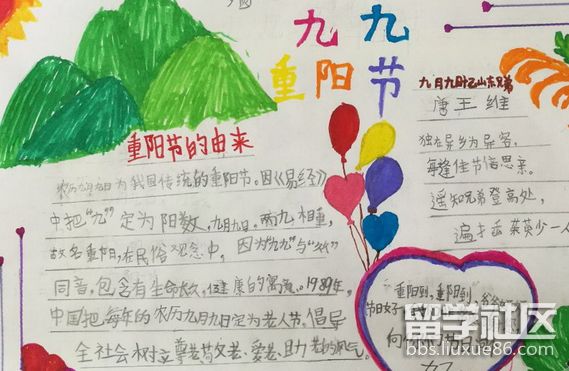 九九
重阳节
重阳节的由来
农历九月九日为我国传统的重阳节。因《易经》
中把“九”定为阳数，九月九日，两九相重，
故名重阳，在民俗观念中，因为“九九”与“久久”
同音，包含有生命长久，健康的寓意。1989年，
中国把每年的农历九月九日定为老人节，倡导
全社会树立尊老敬老、爱老、助老的风气。
九月九日忆山东兄弟
唐 王维
独在异乡为异客，
每逢佳节倍思亲。
遥知兄弟登高处，
遍插茱萸少一人
“重阳到，重阳到，
节日好
留学社区
bbs.liuxue86.com